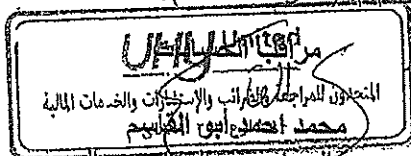 مراقب الحسابات
المتحدون للمراجعة والضرائب والإستشارات والخدمات المالية
محمد احمد أبو القاسم